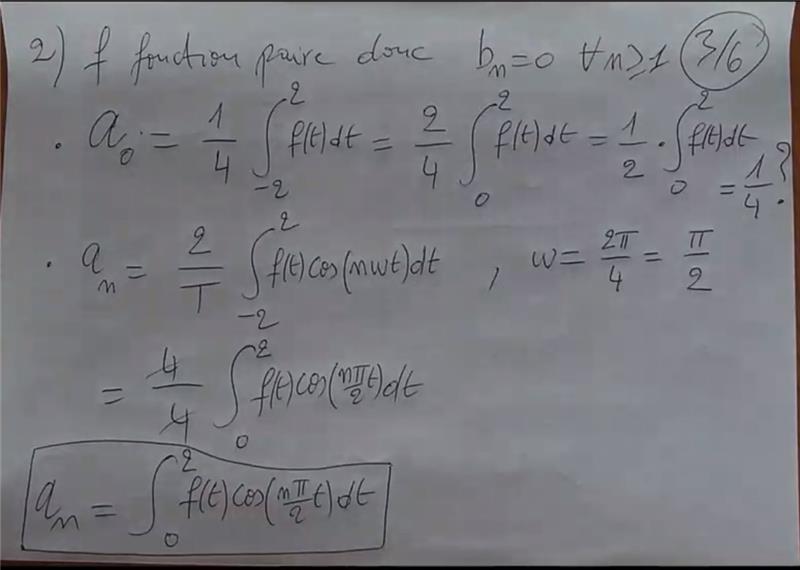 2) f fonction paire donc bₙ=0 ∀n≥1 3/6
· a₀ = 1/4 ∫₋₂² f(t)dt = 2/4 ∫₀² f(t)dt = 1/2 · ∫₀² f(t)dt
= 1/4 ?
· aₙ = 2/T ∫₋₂² f(t)cos(nwt)dt , w = 2π/4 = π/2
= 4/4 ∫₀² f(t)cos(nπ/2 t)dt
aₙ = ∫₀² f(t)cos(nπ/2 t)dt